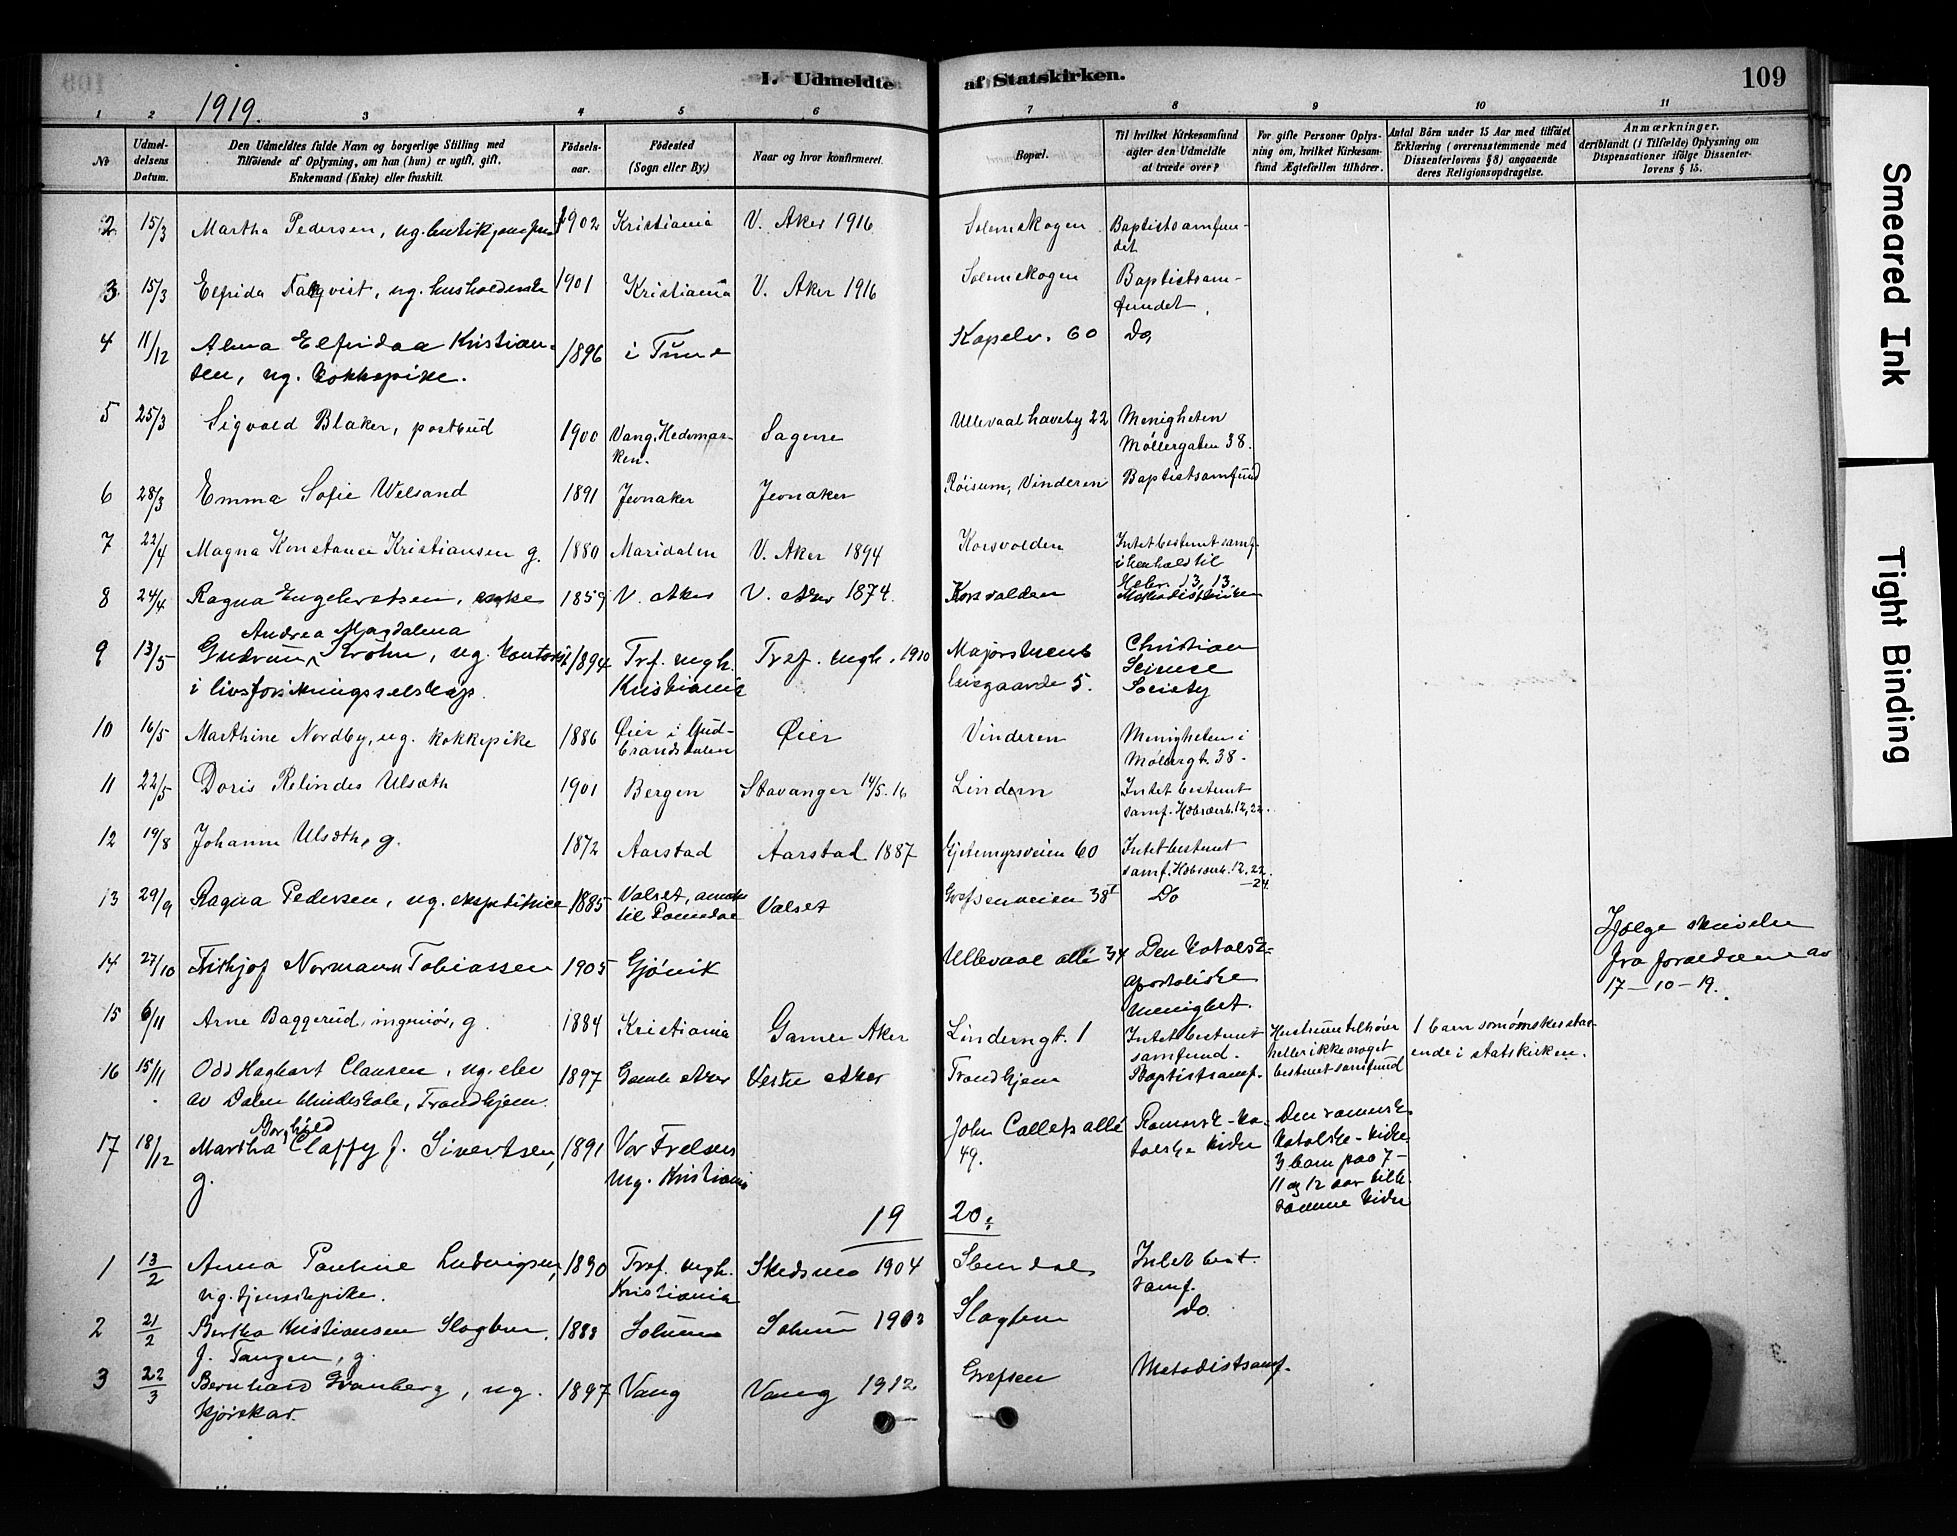 I. Udmeldte af Statskirken.
109
1919.
1 2 3 4 5 6 7 8 9 10 11
No
Udmel-
delsens
Datum.
Den Udmeldtes fulde Navn og borgerlige Stilling med
Tilføiende af Oplysning, om han (hun) er ugift, gift,
Enkemand (Enke) eller fraskilt.
Fødsels-
aar.
Fødested
(Sogn eller By.)
Naar og hvor konfirmeret.
Bopæl.
Til hvilket Kirkesamfund
agter den Udmeldte
at træde over?
For gifte Personer Oplys-
ning om, hvilket Kirkesam-
fund Ægtefællen tilhører.
Antal Börn under 15 Aar med tilføiet
Erklæring (overensstemmende med
Dissenterlovens § 8) angaaende
deres Religionsopdragelse.
Anmærkninger,
deriblandt (i Tilfælde) Oplysning om
Dispensationer ifølge Dissenter-
lovens § 15.
2 15/3 Martha Pedersen, ug. 1902 Kristiania V. Aker 1916 Solemskogen Baptistsamfun-
det
3 15/3 Elfrida ug. 1901 Kristiania V. Aker 1916 Solemskogen Baptistsam-
fundet.
4 11/12 Alma Elfridaa Kristian- 1896 i Tune Kapelv. 60 Do,
sen, ug. kokkepike.
5 25/3 Sigvald Blaker, postbud 1900 Vang, Hedemar-
ken. Sagene Ullevaal haveby 22 Menigheten
Møllergaten 38.
6 28/3 Emma Sofie Welsand 1891 Jevnaker Jevnaker Røisum, Vinderen Baptistsamfund
7 22/4 Magna Konstanse Kristiansen g. 1880 Maridalen V. Aker 1894 Korsvolden Intet bestemt samf.
i henhold til
Hebr. 13, 13.
8 24/4 Ragna Engebretsen, enke 1859 V. Aker V. Aker 1874. Korsvolden Methodistkirken
Andrea Magdalena
9 13/5 Gudrun Krohn, ug. kontorist 1894 Trf. mgh. Tref. mgh. 1910 Majorstuens Christian
i livsforsikringsselskap. Kristiania 5. Science
Society
10 16/5 Marthine Nordby, ug. kokkepike 1886 Øier i Gud-
brandsdalen Øier Vinderen Menigheten i
Møllergt. 38.
11 22/5 Doris Relindes Ulsæth 1901 Bergen Stavanger 14/5. 16 Lindern Intet bestemt
samf. Hebræerb. 12, 22.
12 19/8 Johanne Ulsæth, g. 1872 Aarstad Aarstad 1887 Gjetemyrsveien 60 Intet bestemt
samf. Hebræerb. 12, 22
–24
13 29/9 Ragna Pedersen, ug. ekspeditrice 1885 Valset, anneks
til Valset Grefsenveien 38 I Do
14 27/10 Frithjof Normann Tobiassen 1905 Gjøvik Ullevaal allé 34 Den katolsk-
apostoliske
menighet.
Ifølge skrivelse
fra forældrene av
17–10–19.
15 6/11 Arne Baggerud, ingeniør, g. 1884 Kristiania Gamle Aker Linderngt. 1 Intet bestemt
samfund. Hustruen tilhører
heller ikke noget
bestemt samfund 1 barn som ønskes staa-
ende i statskirken.
16 15/11 Odd Hagbart Clausen, ug. elev 1897 Gamle Aker Vestre Aker Trondhjem Baptistsamf.
av Dalen Mindeskole, Trondhjem.
Borghild
17 18/12 Martha Claffy f. Sivertsen, 1891 Vor Frelsers
mg. Kristiania John Colletts allé
49. Romersk-ka-
tolske kirke Den romersk
katolske kirke
3 barn paa 7–
11 og 12 aar tilh.
samme kirke
g.
19 20.
1 13/2 Anna Pauline Ludvigsen, 1890 Tref. mgh.
Kristiania Skedsmo 1904 Intet best.
samf.
ug. tjenestepike.
2 21/2 Bertha Kristiansen Slagtern, 1883 Solum Solum Do.
f. Tangen, g.
3 22/3 Bernhard Granberg, ug. 1897 Vang Vang 1912 Grefsen Metodistsamf.
kjørekar.
Smeared Ink
Tight Binding